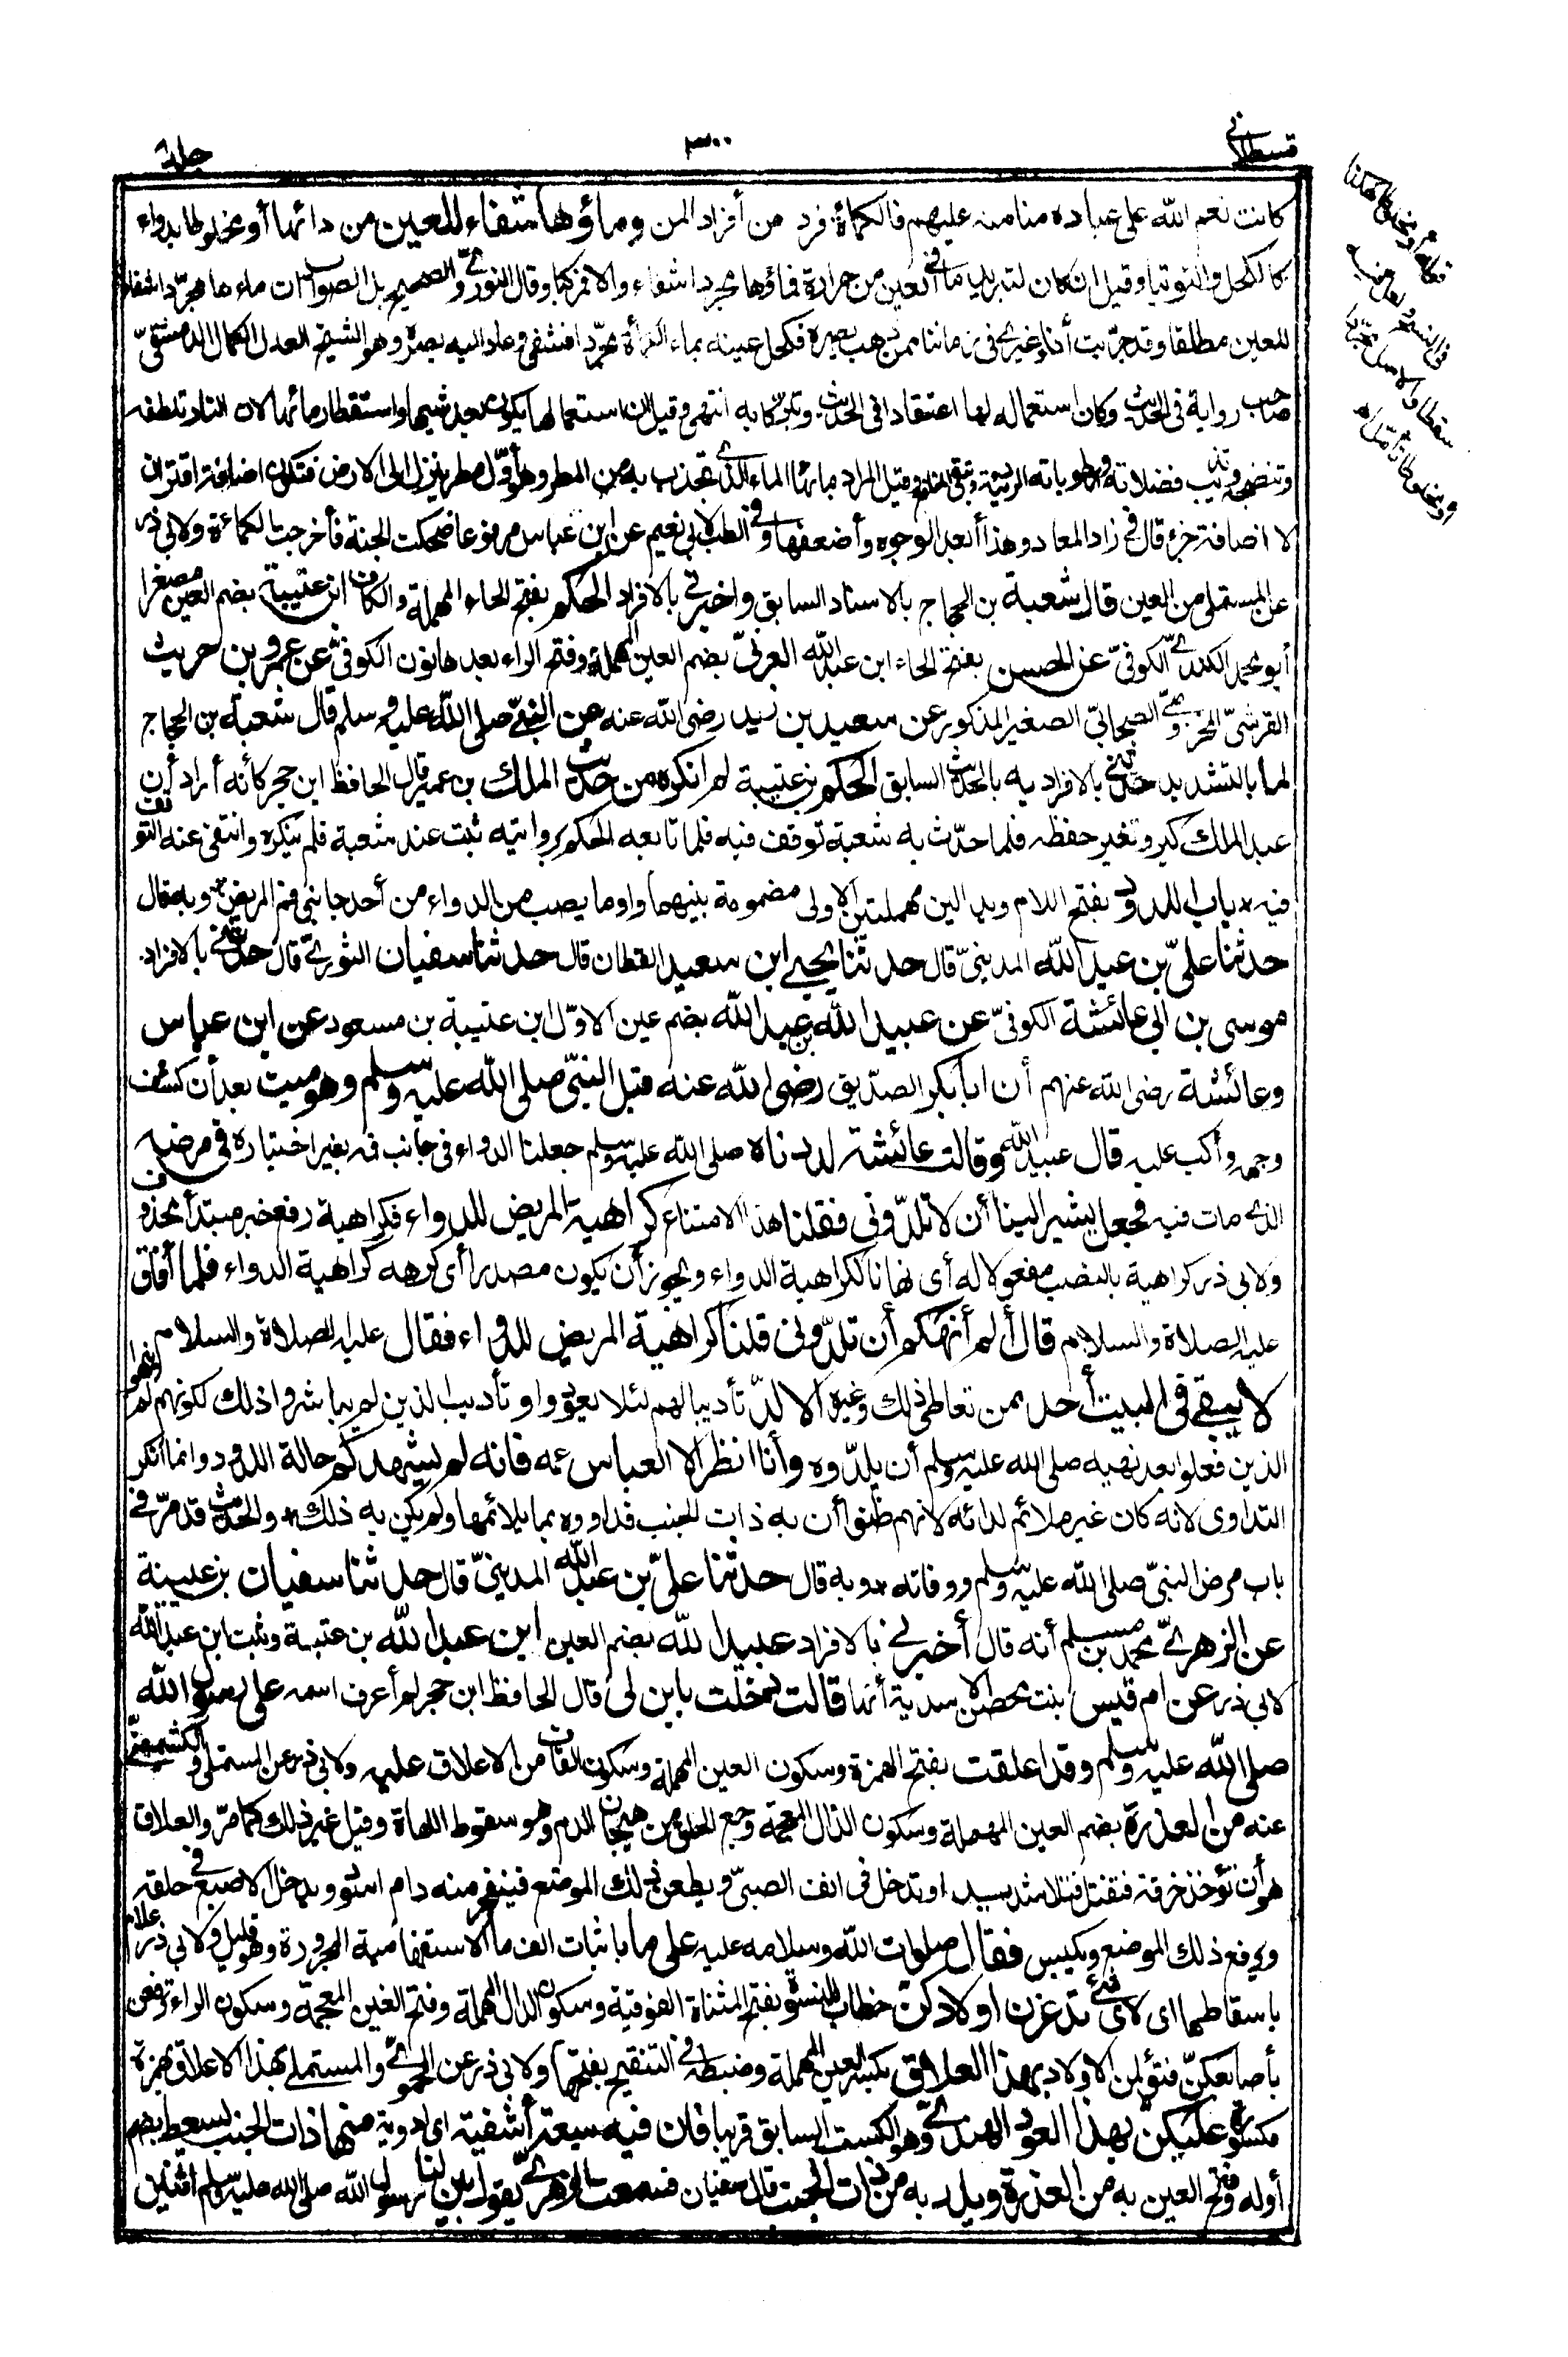 قسطلانى
٣٠٠
جلد ٨
كانت نعم الله على عباده منا منه عليهم فالكمأة فرد من أفراد المن وماؤها شفاء للعين من دائها أو مخلوطا بدواء
كالكحل والتوتيا وقيل ان كان لتبريد ما فى العين من حرارة فماؤها مجردا شفاء والا فمركبا وقال النووى والصحيح بل الصواب ان ماءها مجردا شفاء
للعين مطلقا وقد جرّبت أنا وغيرى فى زماننا ممن ذهب بصره فكحل عينه بماء الكمأة مجردا فشفى وعاد اليه بصره وهو الشيخ العدل الكمال الدمشقىّ
صاحب رواية فى الحديث وكان استعماله لها اعتقادا فى الحديث وتبرّكا به انتهى وقيل ان استعمالها يكون بعد شيها واستقطار مائها لان النار تلطفه
وتنضجه وتذيب فضلاته ورطوباته الرديئة وتبقى النافع وقيل المراد بمائها الماء الذى تحدث به من المطر وهو أوّل مطر ينزل الى الارض فتكون اضافة اقتران
لا اضافة جزء قال فى زاد المعاد وهذا أبعد الوجوه وأضعفها وفى الطب لابى نعيم عن ابن عباس مرفوعا ضحكت الجنة فأخرجت الكمأة ولابى ذر
عن المستملى من العين قال شعبة بن الحجاج بالاسناد السابق واخبرنى بالافراد الحكم بفتح الحاء المهملة والكاف ابن عتيبة بضم العين مصغرا
أبو محمد الكندى الكوفىّ عن الحسن بفتح الحاء ابن عبد الله العرنىّ بضم العين المهملة وفتح الراء بعدها نون الكوفىّ عن عمرو بن حريث
القرشىّ المخزومىّ الصحابىّ الصغير المذكور عن سعيد بن زيد رضى الله عنه عن النبىّ صلى الله عليه وسلم قال شعبة بن الحجاج
لما بالتشديد حدثنى بالافراد به بالحديث السابق الحكم بن عتيبة لم انكره من حديث الملك بن عمير قال الحافظ ابن حجر كأنه أراد أن
عبد الملك كبر وتغير حفظه فلما حدّث به شعبة توقف فيه فلما تابعه الحكم بروايته ثبت عند شعبة فلم ينكره وانتفى عنه التوقف
فيه * باب اللدود بفتح اللام وبدالين مهملتين الاولى مضمومة بينهما واو ما يصب من الدواء من أحد جانبى فم المريض * وبه قال
حدثنا علىّ بن عبد الله المدينىّ قال حدثنا يحيى ابن سعيد القطان قال حدثنا سفيان الثورىّ قال حدثنى بالافراد
موسى بن ابى عائشة الكوفىّ عن عبيد الله بن عبد الله بضم عين الاوّل ابن عتيبة بن مسعود عن ابن عباس
وعائشة رضى الله عنهم أن ابا بكر الصدّيق رضى الله عنه قبل النبىّ صلى الله عليه وسلم وهو ميت بعد أن كشف
وجهه وأكب عليه قال عبيد الله وقالت عائشة لددناه صلى الله عليه وسلم جعلنا الدواء فى جانب فمه بغير اختياره فى مرضه
الذى مات فيه فجعل يشير الينا أن لا تلدّونى فقلنا هذا الامتناع كراهية المريض للدواء فكراهية رفع خبر مبتدأ محذوف
ولابى ذر كراهية بالنصب مفعولا له أى نهانا لكراهية الدواء ويجوز أن يكون مصدرا أى كرهه كراهية الدواء فلما أفاق
عليه الصلاة والسلام قال ألم أنهكم أن تلدّونى قلنا كراهية المريض للدواء فقال عليه الصلاة والسلام
لا يبقى فى البيت أحد ممن تعاطى ذلك وغيره الا لدّ تأديبا لهم لئلا يعودوا وتأديب الذين لم يباشروا ذلك لكونهم لم ينهوا
الذين فعلوا بعد نهيه صلى الله عليه وسلم أن يلدّوه وأنا انظر الا العباس عمه فانه لم يشهدكم حالة اللدود وانما انكر
التداوى لانه كان غير ملائم لدائه لانهم ظنوا أن به ذات الجنب فداووه بما يلائمها ولم يكن به ذلك * والحديث قد مرّ فى
باب مرض النبىّ صلى الله عليه وسلم ووفاته * وبه قال حدثنا علىّ بن عبد الله المدينىّ قال حدثنا سفيان بن عيينة
عن الزهرىّ محمد بن مسلم أنه قال أخبرنى بالافراد عبيد الله بضم العين ابن عبد الله بن عتبة وثبت ابن عبد الله
لابى ذر عن ام قيس بنت محصن الاسدية أنها قالت دخلت بابن لى قال الحافظ ابن حجر لم أعرف اسمه على رسول الله
صلى الله عليه وسلم وقد اعلقت بفتح الهمزة وسكون العين المهملة وسكون القاف من الاعلاق عليه ولابى ذر عن المستملى والكشميهنىّ
عنه من العذرة بضم العين المهملة وسكون الذال المعجمة وجع الحلق من هيجان الدم وهو سقوط اللهاة وقيل غير ذلك كما مرّ والعلاق
هو أن تؤخذ خرقة فتفتل فتلا شديدا وتدخل فى انف الصبىّ ويطعن ذلك الموضع فينفجر منه دم اسود ويدخل الاصبع فى حلقه
ويرفع ذلك الموضع ويكبس فقال صلوات الله وسلامه عليه على ما باثبات الف ما الاستفهامية المجرورة وهو قليل ولابى ذر علام
باسقاطها اى لاى شئ تدغرن اولادكن خطاب للنسوة بفتح المثناة الفوقية وسكون الدال المهملة وفتح الغين المعجمة وسكون الراء ترفعن
بأصابعكنّ فتؤلمن الاولاد بهذا العلاق بكسر العين المهملة وضبطه فى التنقيح بفتحها ولابى ذر عن الحموى والمستملى بهذا الاعلاق بهمزة
مكسورة عليكن بهذا العود الهندىّ وهو الكست السابق قريبا فان فيه سبعة أشفية اى ادوية منها ذات الجنب يسعط بضم
أوله وفتح العين به من العذرة ويلد به من ذات الجنب قال سفيان فسمعت الزهرىّ يقول بين لنا رسول الله صلى الله عليه وسلم اثنين